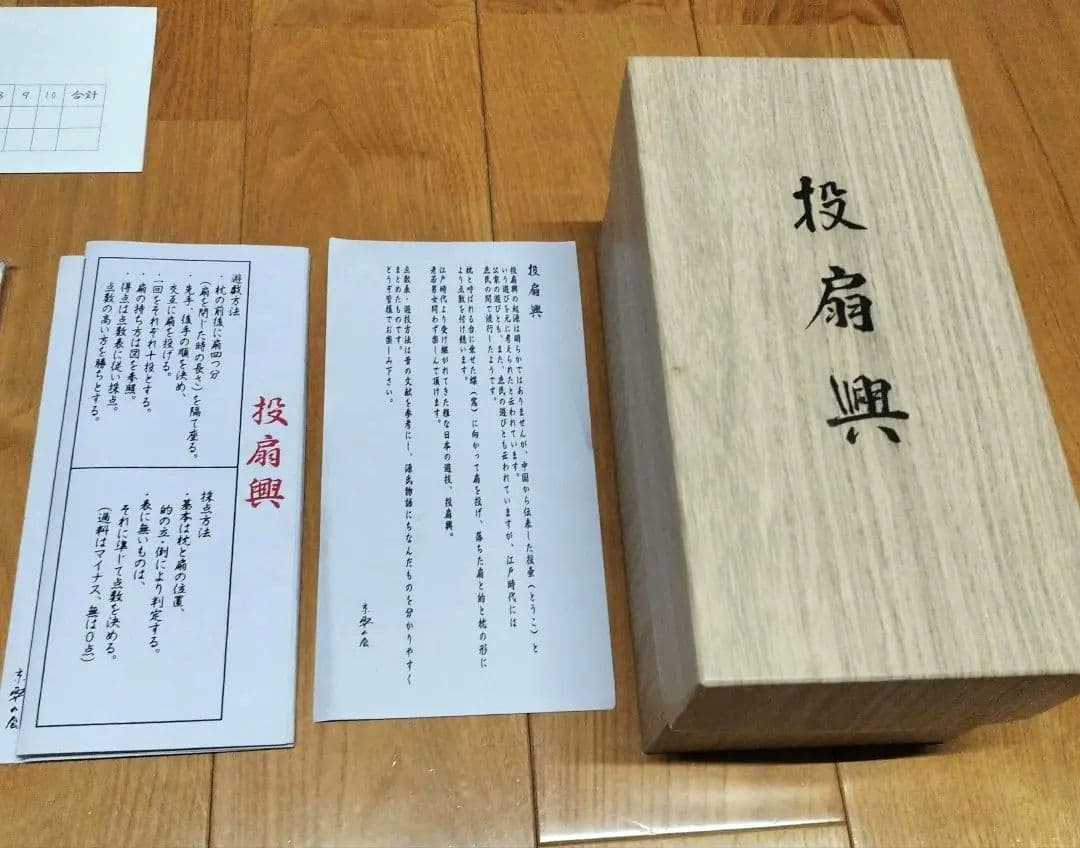 投扇興
投扇興
投扇興の起源は明らかではありませんが、中国から伝来した投壷(とうこ)と
いう遊びを元に考えられたと云われています。
公家の遊びとも、また、庶民の遊びとも云われていますが、江戸時代には
庶民の間で流行したようです。
枕と呼ばれる台に乗せた蝶(窩)に向かって扇を投げ、落ちた扇と的と枕の形に
より点数を付け競います。
江戸時代より受け継がれてきた雅な日本の遊技、投扇興。
老若男女問わず楽しんで頂けます。
点数表・遊技方法は昔の文献を参考にし、源氏物語にちなんだものを分かりやすく
まとめたものです。
どうぞ皆様でお楽しみ下さい。
投扇興
遊戯方法
・枕の前後に扇四つ分
(扇を閉じた時の長さ)を隔て座る。
・先手、後手の順を決め、
交互に扇を投げる。
・一回をそれぞれ十投とする。
・扇の持ち方は図を参照。
・得点は点数表に従い採点。
点数の高い方を勝ちとする。
採点方法
・基本は枕と扇の位置、
的の立・倒により判定する。
・表に無いものは、
それに準じて点数を決める。
(過料はマイナス、無は0点)
9 10 合計